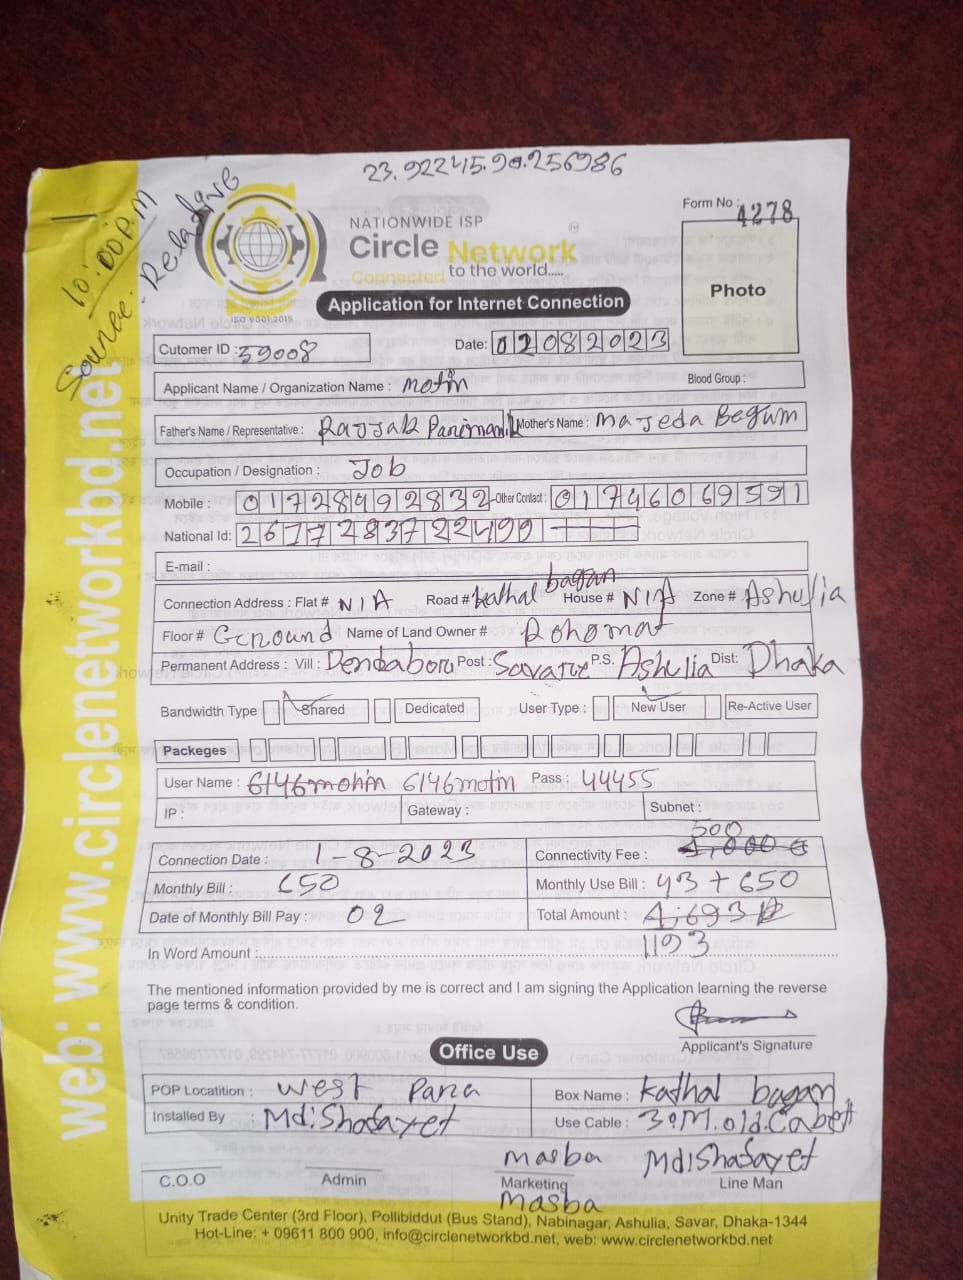 23.92245.90.256986
10:00 P.M
Source. Relative
NATIONWIDE ISP
Circle Network
Connected to the world.....
ISO 9001:2015
Form No : 4278
Photo
Application for Internet Connection
Cutomer ID : 39008
Date: 02082023
Applicant Name / Organization Name : Motin
Blood Group :
Father's Name / Representative : Razzak Paramanik Mother's Name : Majeda Begum
Occupation / Designation : Job
Mobile : 01728992832 Other Contact : 01746069591
National Id: 2677283722499
E-mail :
Connection Address : Flat # N/A Road # kathal bagan House # N/A Zone # Ashulia
Floor # Ground Name of Land Owner # Rohomat
Permanent Address : Vill : Dendabor Post : Savar P.S. Ashulia Dist: Dhaka
Bandwidth Type Shared Dedicated User Type : New User Re-Active User
Packeges
User Name : 6146mohin 6146motin Pass : 44455
IP : Gateway : Subnet :
500
Connection Date : 1-8-2023 Connectivity Fee : 1,000
Monthly Bill : 650 Monthly Use Bill : 43 + 650
Date of Monthly Bill Pay : 02 Total Amount : 1,693
1193
In Word Amount :
The mentioned information provided by me is correct and I am signing the Application learning the reverse
page terms & condition.
Applicant's Signature
Office Use
POP Locatition : West Para Box Name : kathal bagan
Installed By Md:Shafayet Use Cable : 30M.old.Cabel
Masba Md:Shafayet
C.O.O Admin Marketing Line Man
Masba
Unity Trade Center (3rd Floor), Pollibiddut (Bus Stand), Nabinagar, Ashulia, Savar, Dhaka-1344
Hot-Line: + 09611 800 900, info@circlenetworkbd.net, web: www.circlenetworkbd.net
web: www.circlenetworkbd.net